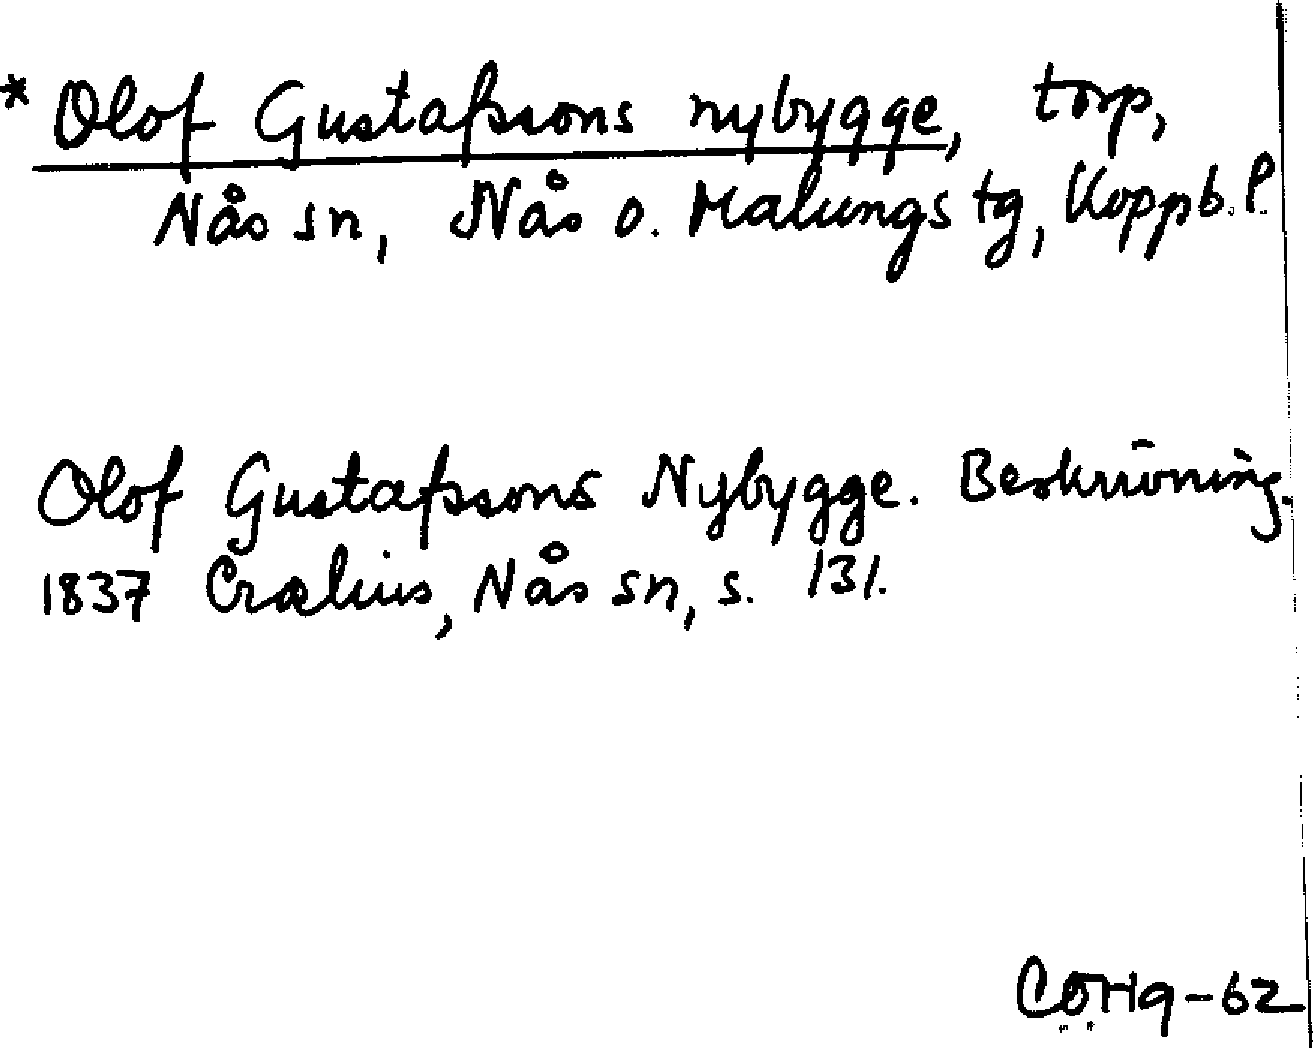 * Olof Gustafssons nybygge, torp,
Nås sn, Nås o. Malungs tg, Koppb. l.
Olof Gustafssons Nybygge. Beskrivning.
1837 Crælius, Nås sn, s. 131.
CÖHg-62